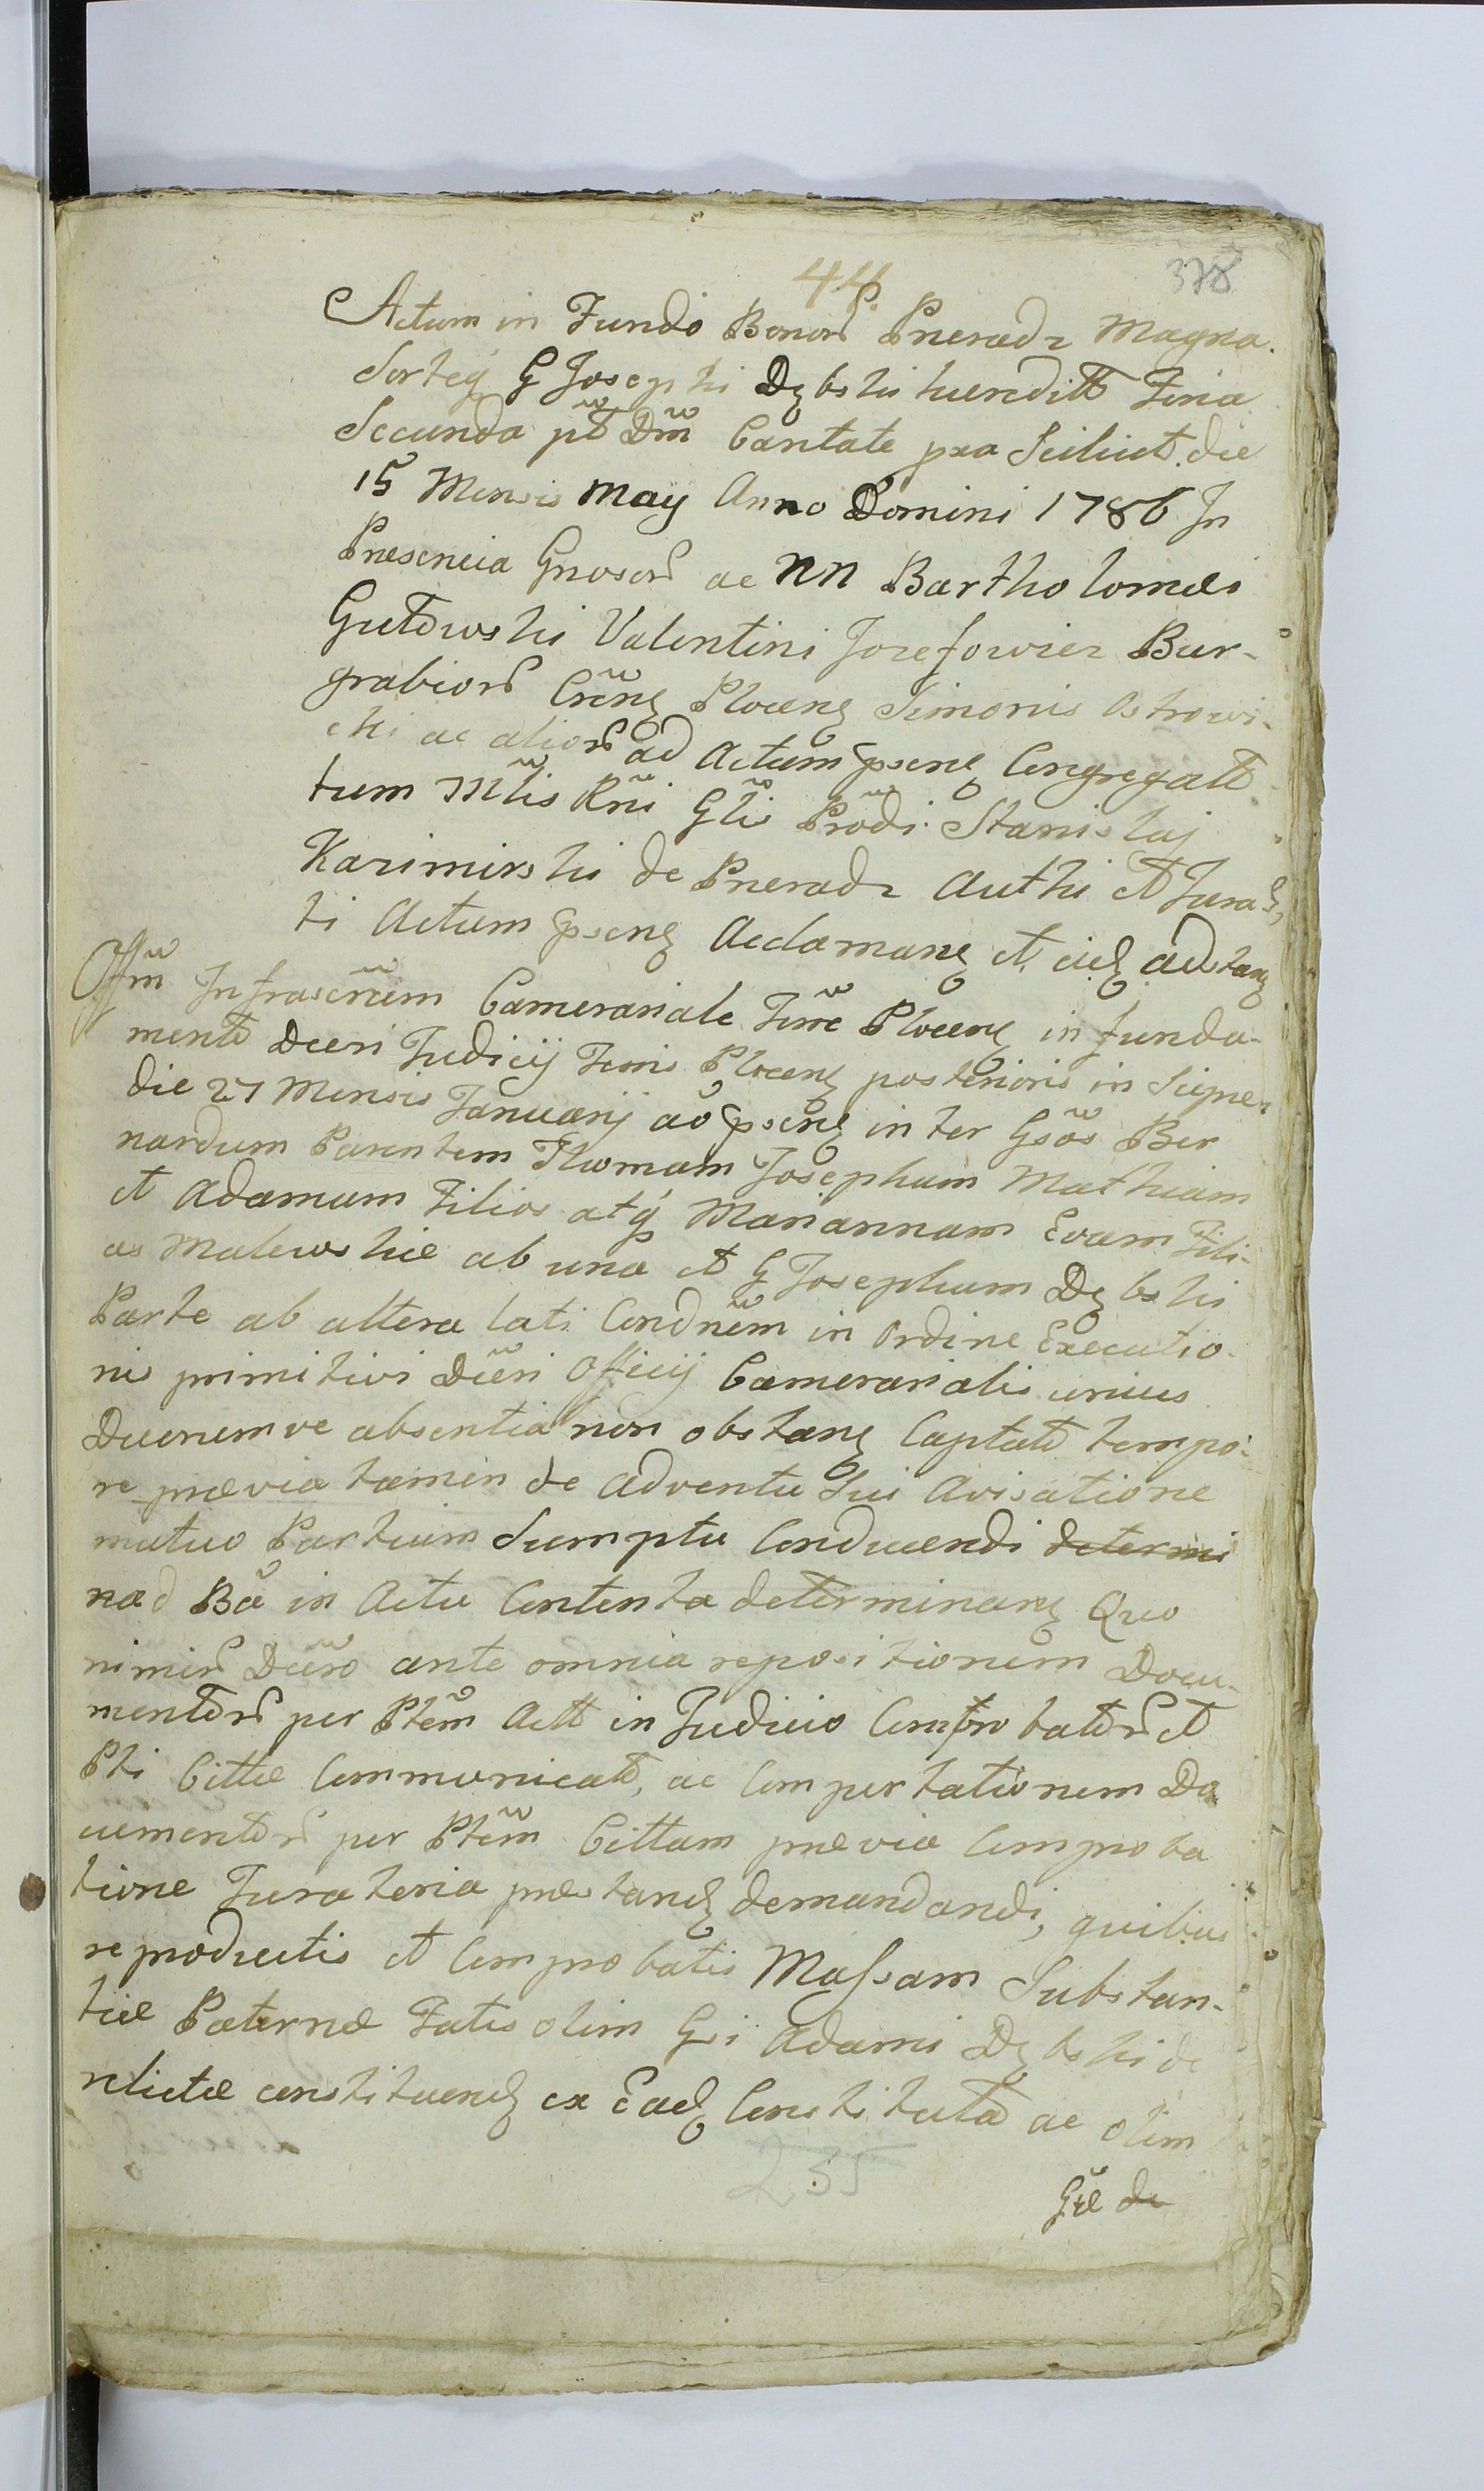 44.
378
Actum in Fundo Bonorũ Pneradz Magna
Sorteq̃ G Josephi Dębski hæreditt Feria
Secunda pt̃ Dm̃ Cantate pxa Scilicet die
15 Mensis May Anno Domini 1786 In
Presencia Gnosorũ ac NN Bartholomæi
Gutowski Valentini Jozefowicz Bur-
grabiorũ Crẽnę Plocenę Simonis Ostrowi-
cki ac aliorũ ad Actum psenę Congregatt
tum Mlĩs Rnĩ Glĩs Prõdi Stanislaj
Kazimirski de Pneradz Authi et Jura
ti Actum psenę Acclamanę et eidę adstanę
Offm̃ Infrascrũm Camerariale Trr̃æ Plocenę in funda-
mento Decri Judicij Trris Plocenę posterioris in Signe
die 27 Mensis Januarij aõ psenę inter Gsõs Ber
nardum Parentem Thomam Josephum Mathiam
et Adamum Filios atq̃ Mariannam Evam Fili-
as Malewskie ab una et G Josephum Dębski
Parte ab altera lati Condnẽm in Ordine Executio-
nis primitivi Dc̃eri Officij Camerarialis unius
Duorumve absentia non obstanę Captato tempo-
re prævia tamen de adventu Sui Avisatione
mutuo Partium Sumptu Conducendi determi
nad Bã in Actu Contenta determinanę Quo
nimirũ Dc̃ero ante omnia repositionem Docu-
mentorũ per Ptẽm Actt in Judicio Comprobatorũ et
Pti Cittæ Communicatt, ac Comportationem Do
cumentorũ per Ptẽm Cittam prævia Comproba
tione Juratoria præstandę demandandi, quibus
reproductis et Comprobatis Massam Substan-
tiæ Paternæ Fatis olim Gsi Adami Dębski de
relictæ constituendę ex Eadę Constituta ac olim
Gsæ de
235